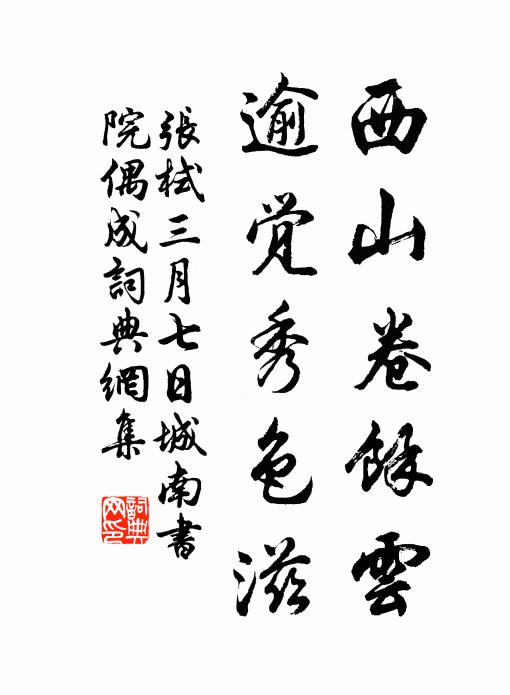 西山卷餘雲
逾覚秀色滋
張栻三月七日城南書
院偶成詞典網集
詞典
网印